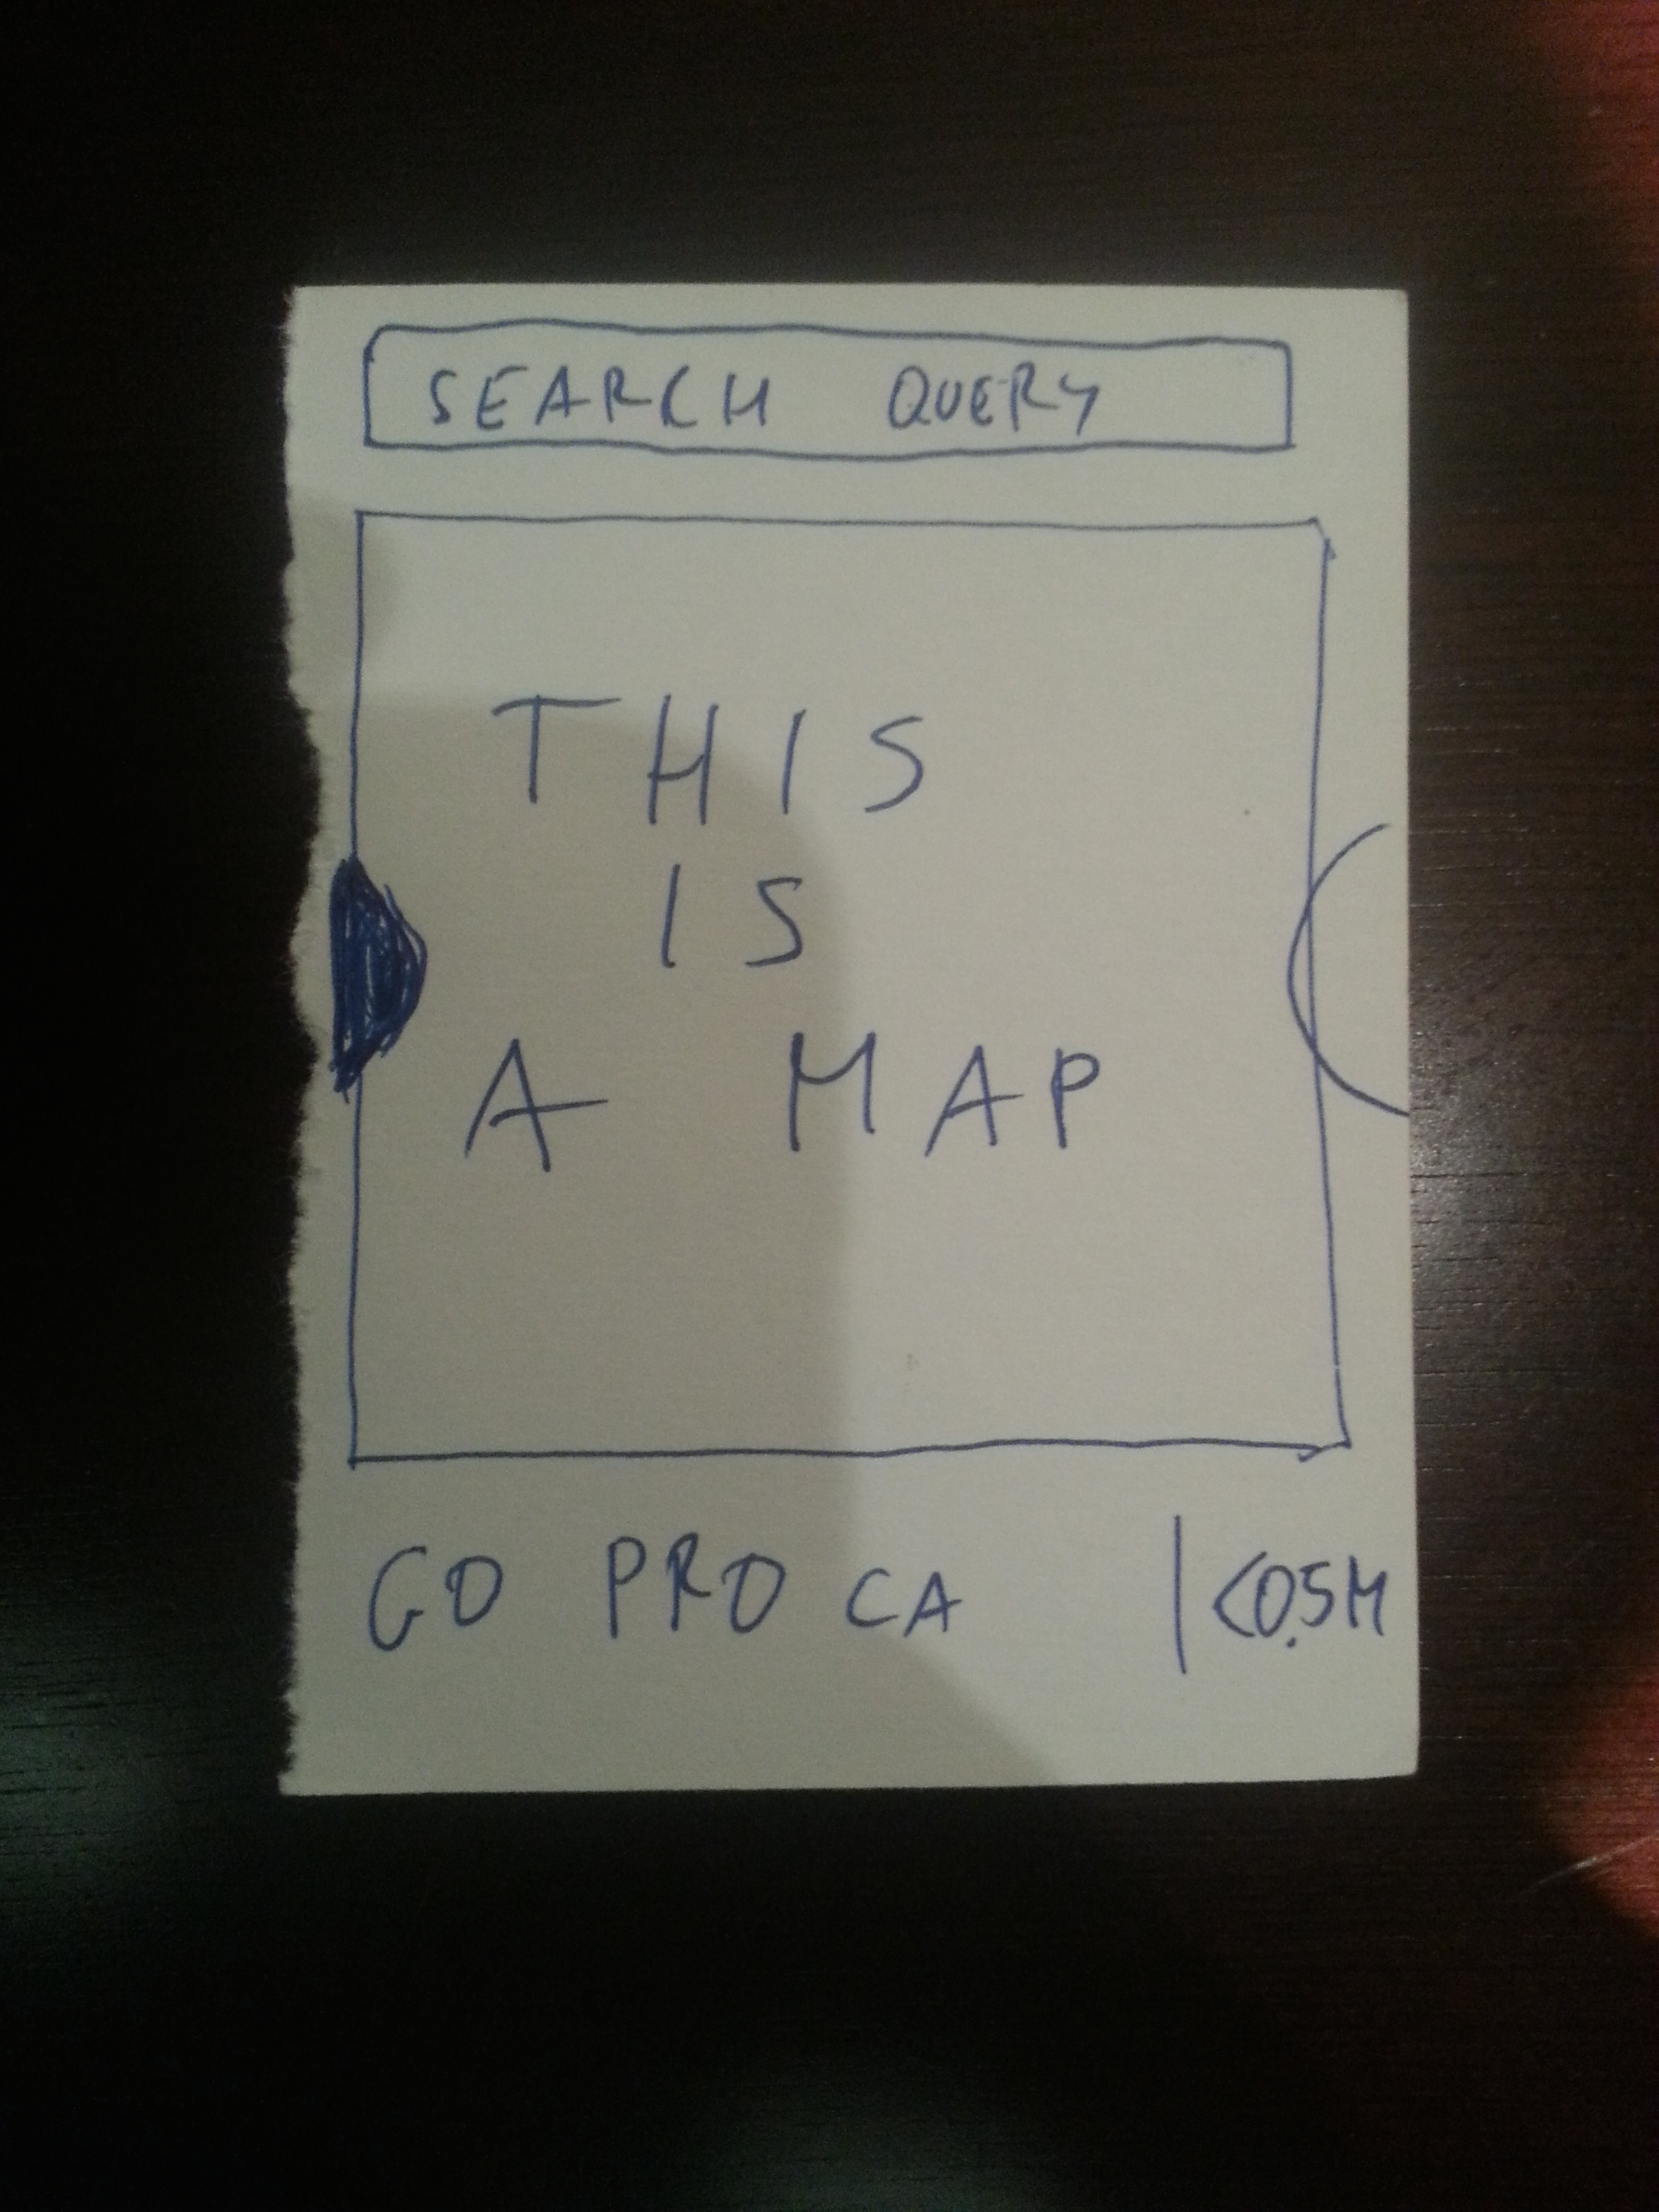 SEARCH QUERY
THIS
IS
A MAP
GO PRO CA | <0.5M